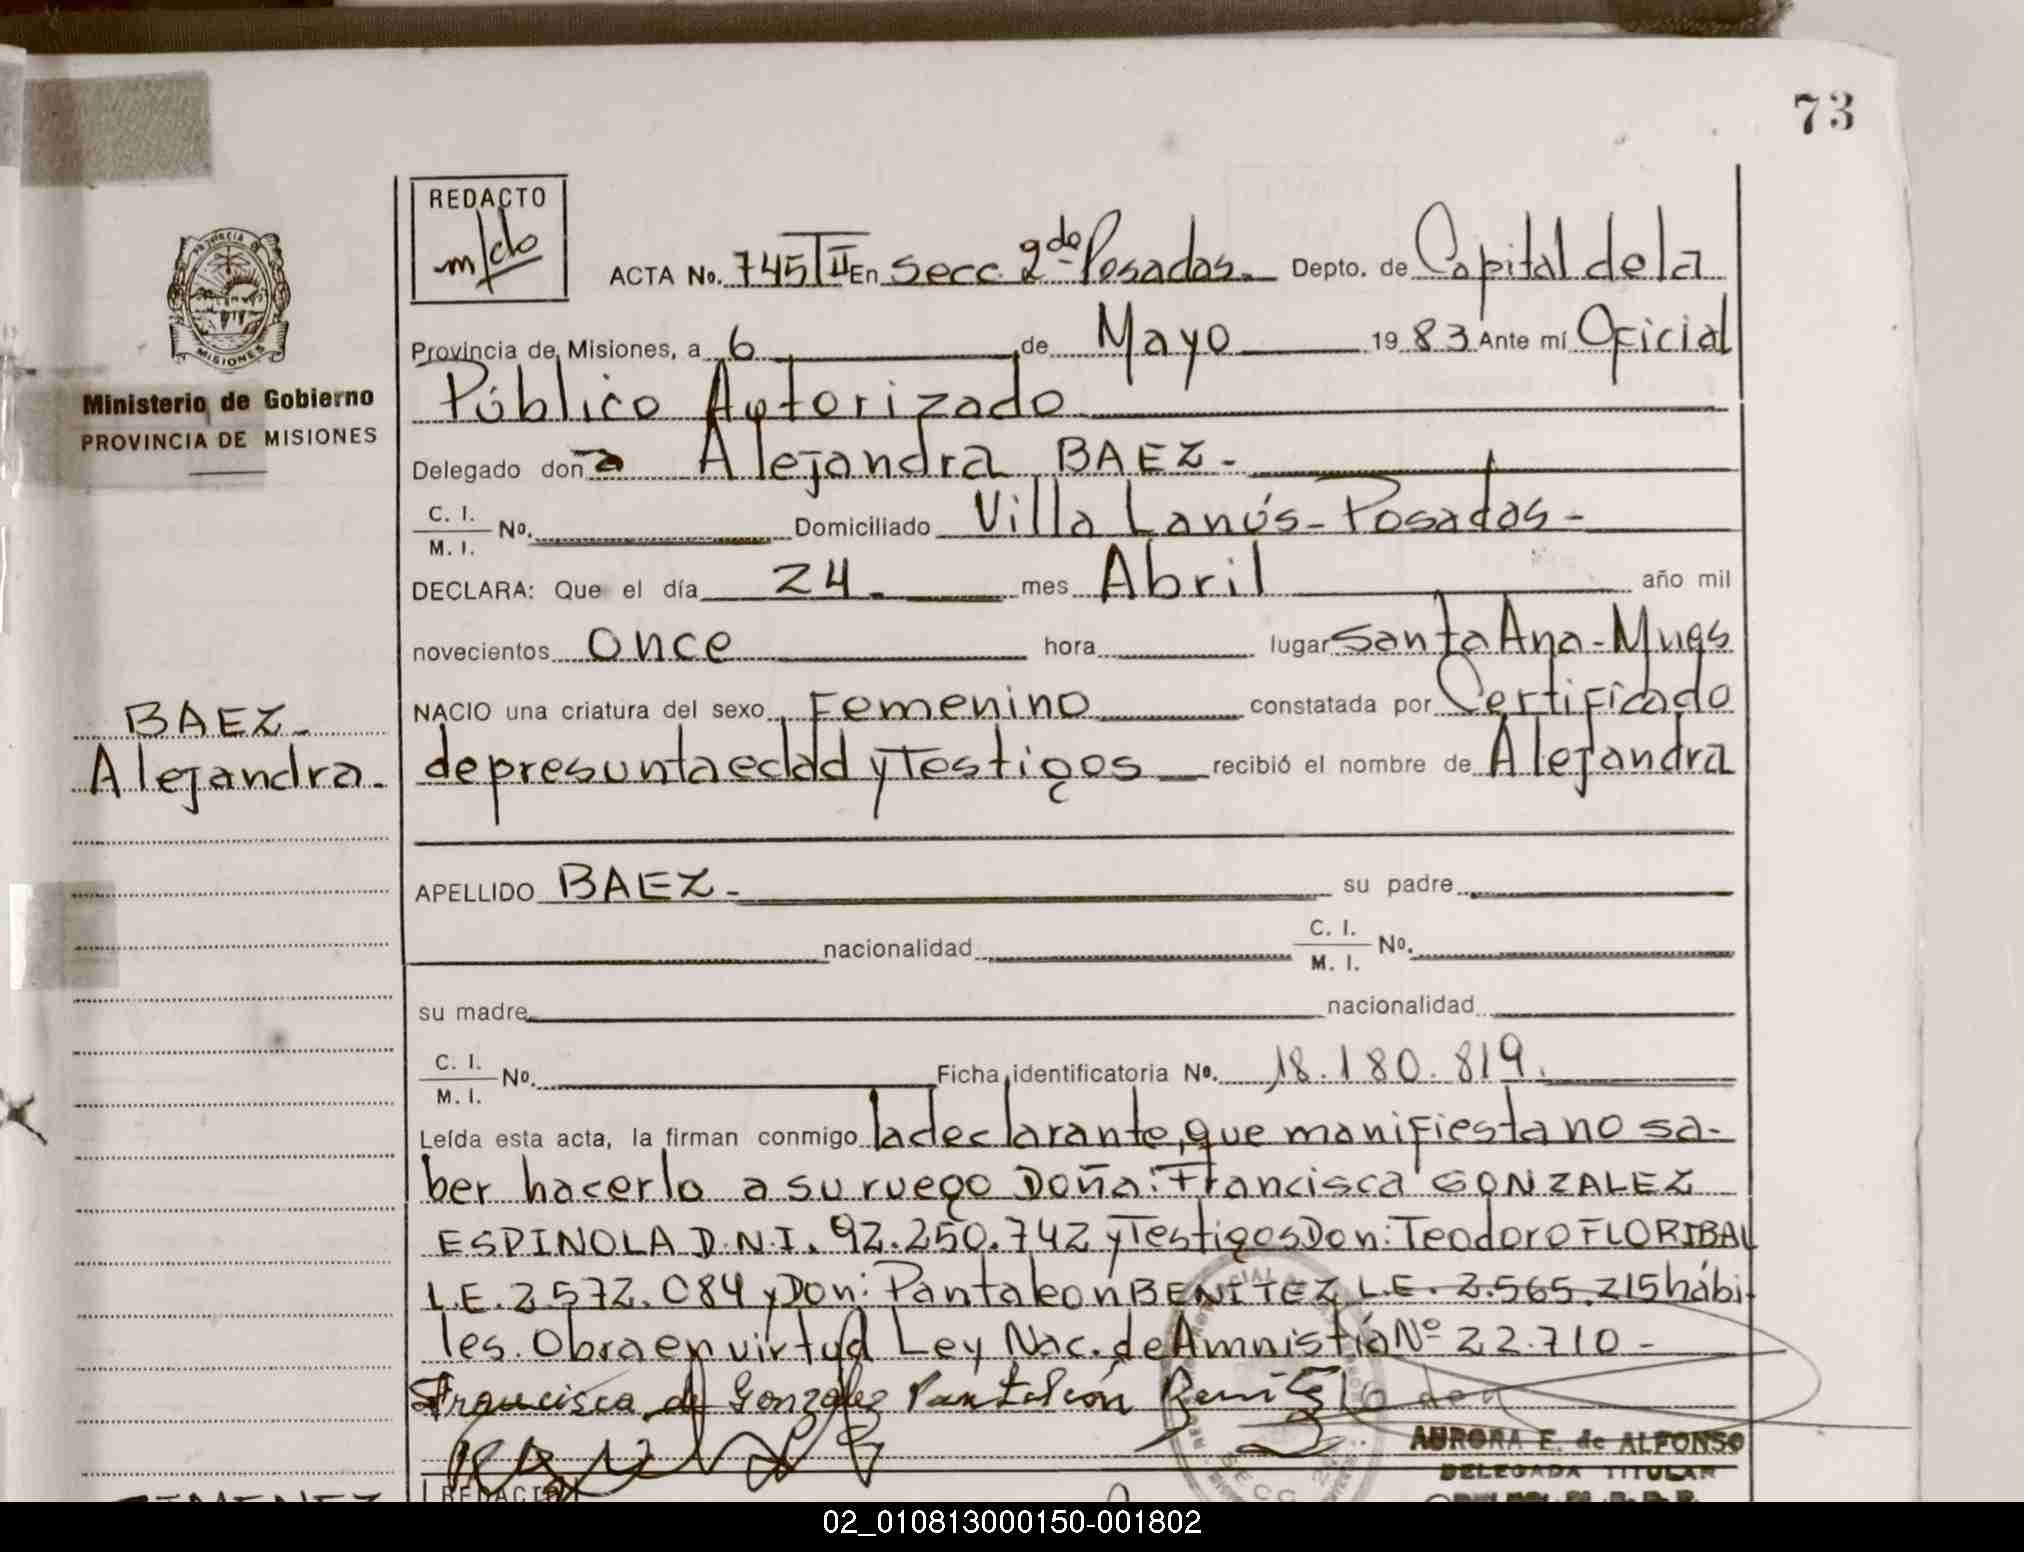 73
REDACTO
ACTA No. 745 TII En Secc. 2do Posadas. Depto. de Capital de la
PROVINCIA DE
MISIONES
Provincia de Misiones, a 6 de Mayo 1983 Ante mí Oficial
Ministerio de Gobierno
PROVINCIA DE MISIONES
Público Autorizado
Delegado don a Alejandra BAEZ-
C. I.
M. I. No. Domiciliado Villa Lanús-Posadas-
DECLARA: Que el día 24. mes Abril año mil
novecientos once hora lugar Santa Ana-Mnes
BAEZ-
Alejandra-
NACIO una criatura del sexo Femenino constatada por Certificado
de presunta edad y Testigos recibió el nombre de Alejandra
APELLIDO BAEZ- su padre
nacionalidad C. I.
M. I. No.
su madre nacionalidad
C. I.
M. I. No. Ficha identificatoria No. 18.180.819.
Leída esta acta, la firman conmigo la declarante, que manifiesta no sa-
ber hacerlo a su ruego Doña: Francisca GONZALEZ
ESPINOLA D.N.I. 92.250.742 y Testigos Don: Teodoro FLORIBAL
L.E. 2.572.084 y Don: Pantaleon BENITEZ L.E. 2.565.215 hábi-
les. Obra en virtud Ley Nac. de Amnistía Nº 22.710-
Francisca de Gonzalez Pantaleón Benitez
AURORA E. de ALFONSO
DELEGADA TITULAR
REDACTO
02_010813000150-001802